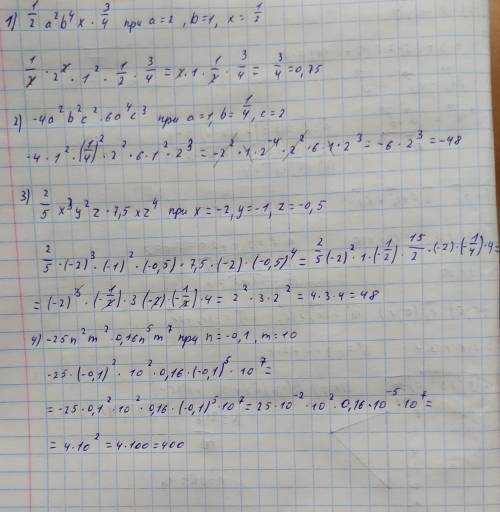 1) 1/2 a²b⁴x · 3/4 при a=2, b=1, x=1/2
1/2 · 2² · 1² · 1/2 · 3/4 = 2 · 1 · 1/2 · 3/4 = 3/4 = 0,75
2) -4a²b²c² · 6a⁴c³ при a=1, b=1/4, c=2
-4 · 1² · (1/4)² · 2² · 6 · 1² · 2³ = -2² · 1 · 2⁻⁴ · 2² · 6 · 1 · 2³ = -6 · 2³ = -48
3) 2/5 x³y²z · 7,5 xz⁴ при x=-2, y=-1, z=-0,5
2/5 · (-2)³ · (-1)² · (-0,5) · 7,5 · (-2) · (-0,5)⁴ = 2/5 (-2)³ · 1 · (-1/2) · 15/2 · (-2) · (-1/4) · 4 =
= (-2)³ · (-1/2) · 3 (-2) (-1/2) · 4 = 2² · 3 · 2² = 4 · 3 · 4 = 48
4) -25n²m² · 0,16n⁵m⁷ при n=-0,1, m=10
-25 · (-0,1)² · 10² · 0,16 · (-0,1)⁵ · 10⁷ =
= -25 · 0,1² · 10² · 0,16 · (-0,1)⁵ · 10⁷ = 25 · 10⁻² · 10² · 0,16 · 10⁻⁵ · 10⁷ =
= 4 · 10² = 4 · 100 = 400